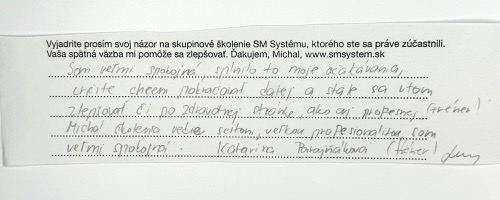 Vyjadrite prosím svoj názor na skupinové školenie SM Systému, ktorého ste sa práve zúčastnili.
Vaša spätná väzba mi pomôže sa zlepšovať. Ďakujem, Michal, www.smsystem.sk
Som veľmi spokojná, splnilo to moje očakávania,
určite chcem pokračovať ďalej a stále sa v tom
zlepšovať či po zdravotnej stránke, ako aj profesnej (tréner).
Michal školenie veľkou profesionalitou, som
veľmi spokojná. Katarína (tréner)